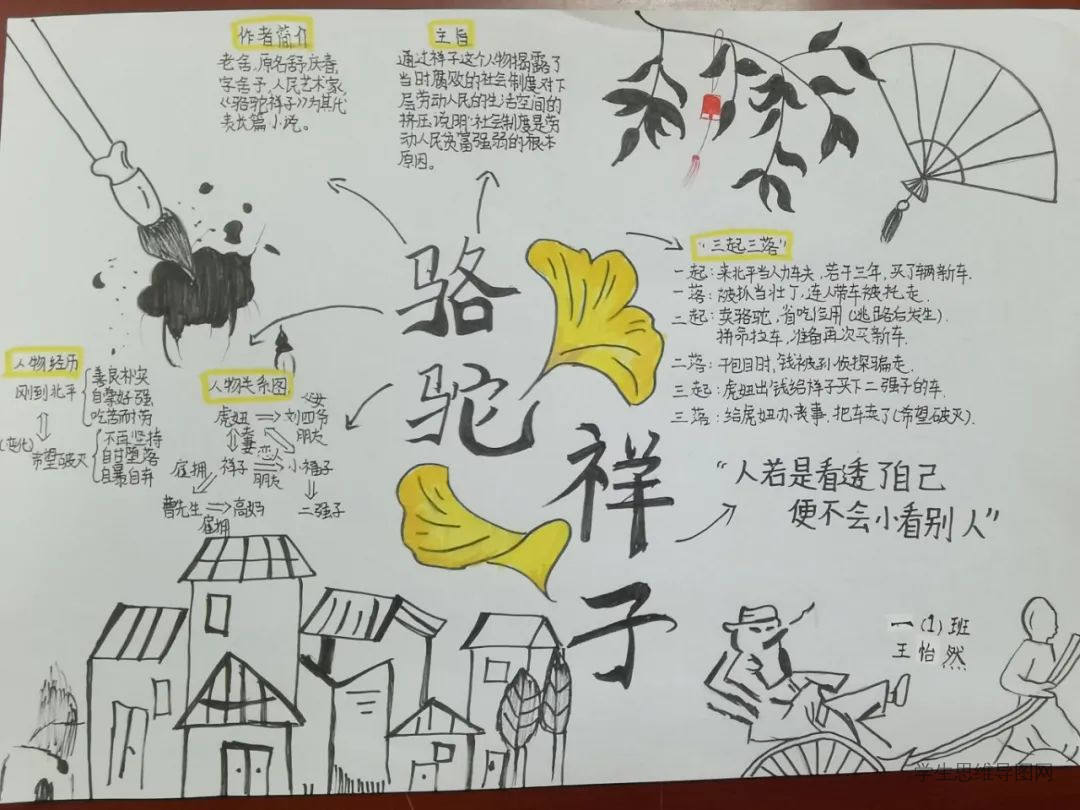 作者简介
老舍,原名舒庆春,
字舍予,人民艺术家,
《骆驼祥子》为其代
表长篇小说。
主旨
通过祥子这个人物揭露了
当时腐败的社会制度对下
层劳动人民的生活空间的
挤压,说明:社会制度是劳
动人民贫富强弱的根本
原因。
骆
驼
祥
子
"三起三落"
一起:来北平当人力车夫,若干三年,买了辆新车.
一落:被抓当壮丁,连人带车被抢走.
二起:卖骆驼,省吃俭用(逃路后发生).
拼命拉车,准备再次买新车.
二落:干包月时,钱被孙侦探骗走.
三起:虎妞出钱给祥子买下二强子的车.
三落:给虎妞办丧事,把车卖了(希望破灭).
人物经历
刚到北平
善良朴实
自尊好强
吃苦耐劳
(变化)
希望破灭
不再坚持
自甘堕落
自暴自弃
人物关系图
父女
虎妞 刘四爷
朋友
妻 恋人
雇拥 祥子 小福子
朋友
曹先生 高妈 二强子
雇拥
"人若是看透了自己
便不会小看别人"
一(1)班
王怡然
学生思维导图网